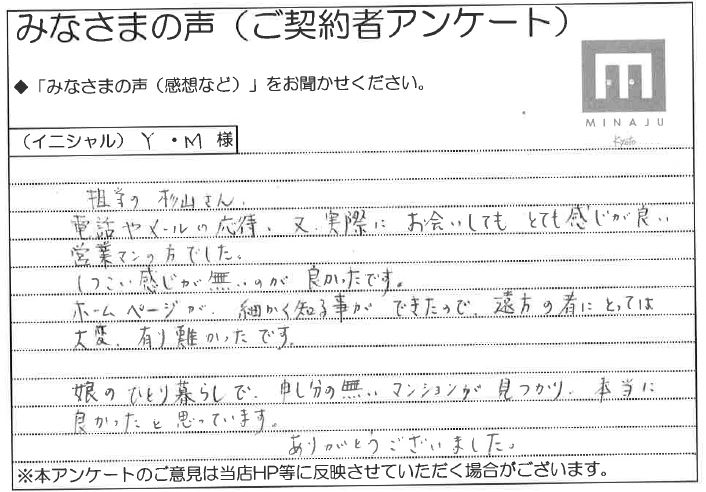 みなさまの声（ご契約者アンケート）
◆「みなさまの声（感想など）」をお聞かせください。
MINAJU
Kyoto
（イニシャル） Y ・M 様
担当の 杉山さん、
電話やメールの応待、又、実際に お会いしても とても感じが良い
営業マンの方でした。
しつこい感じが無いのが 良かったです。
ホームページが、細かく知る事が できたので、遠方の者にとっては
大変、有り難かったです。
娘のひとり暮らしで、申し分の無い マンションが 見つかり、本当に
良かったと思っています。
ありがとうございました。
※本アンケートのご意見は当店HP等に反映させていただく場合がございます。